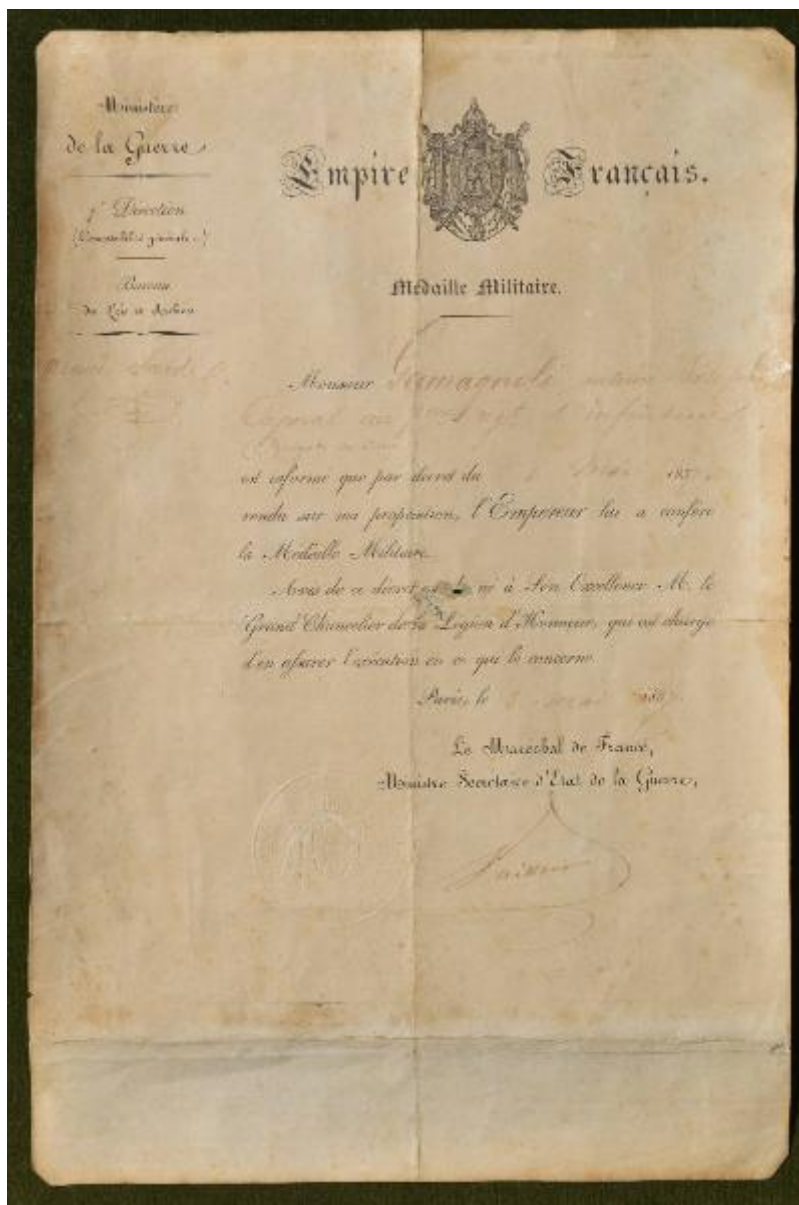 Ministère
de la Guerre
7e Direction
(Comptabilité générale.)
Bureau
des Lois et Archives
Empire Français.
Médaille Militaire.
Monsieur
Caporal au d'infanterie
est informé que par décret du Mai 185
rendu sur ma proposition, l'Empereur lui a conféré
la Médaille Militaire.
Avis de ce décret est à Son Excellence M. le
Grand Chancelier de la Légion d'Honneur, qui est chargé
d'en assurer l'exécution en ce qui le concerne.
Paris, le mai 185
Le Maréchal de France,
Ministre Secrétaire d'Etat de la Guerre,
Vaillant